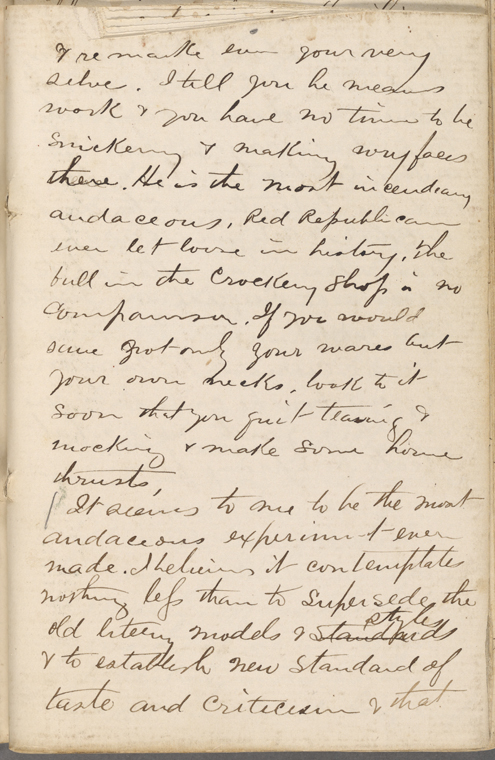 & remake even your very
selve. I tell you he means
work & you have no time to be
snickering & making wry faces
there. He is the most incendiary
audaceous, Red Republican
ever let loose in history, the
bull in the Crockery Shop is no
Comparison. If you would
save not only your wares but
your own necks, look to it
soon that you quit teasing &
mocking & make some home
thrusts,
It seems to me to be the most
audaceous experiment ever
made. I believe it contemplates
nothing less than to Supersede the
styles
old literary models & Standards
& to establish new Standard of
taste and Criticism & that